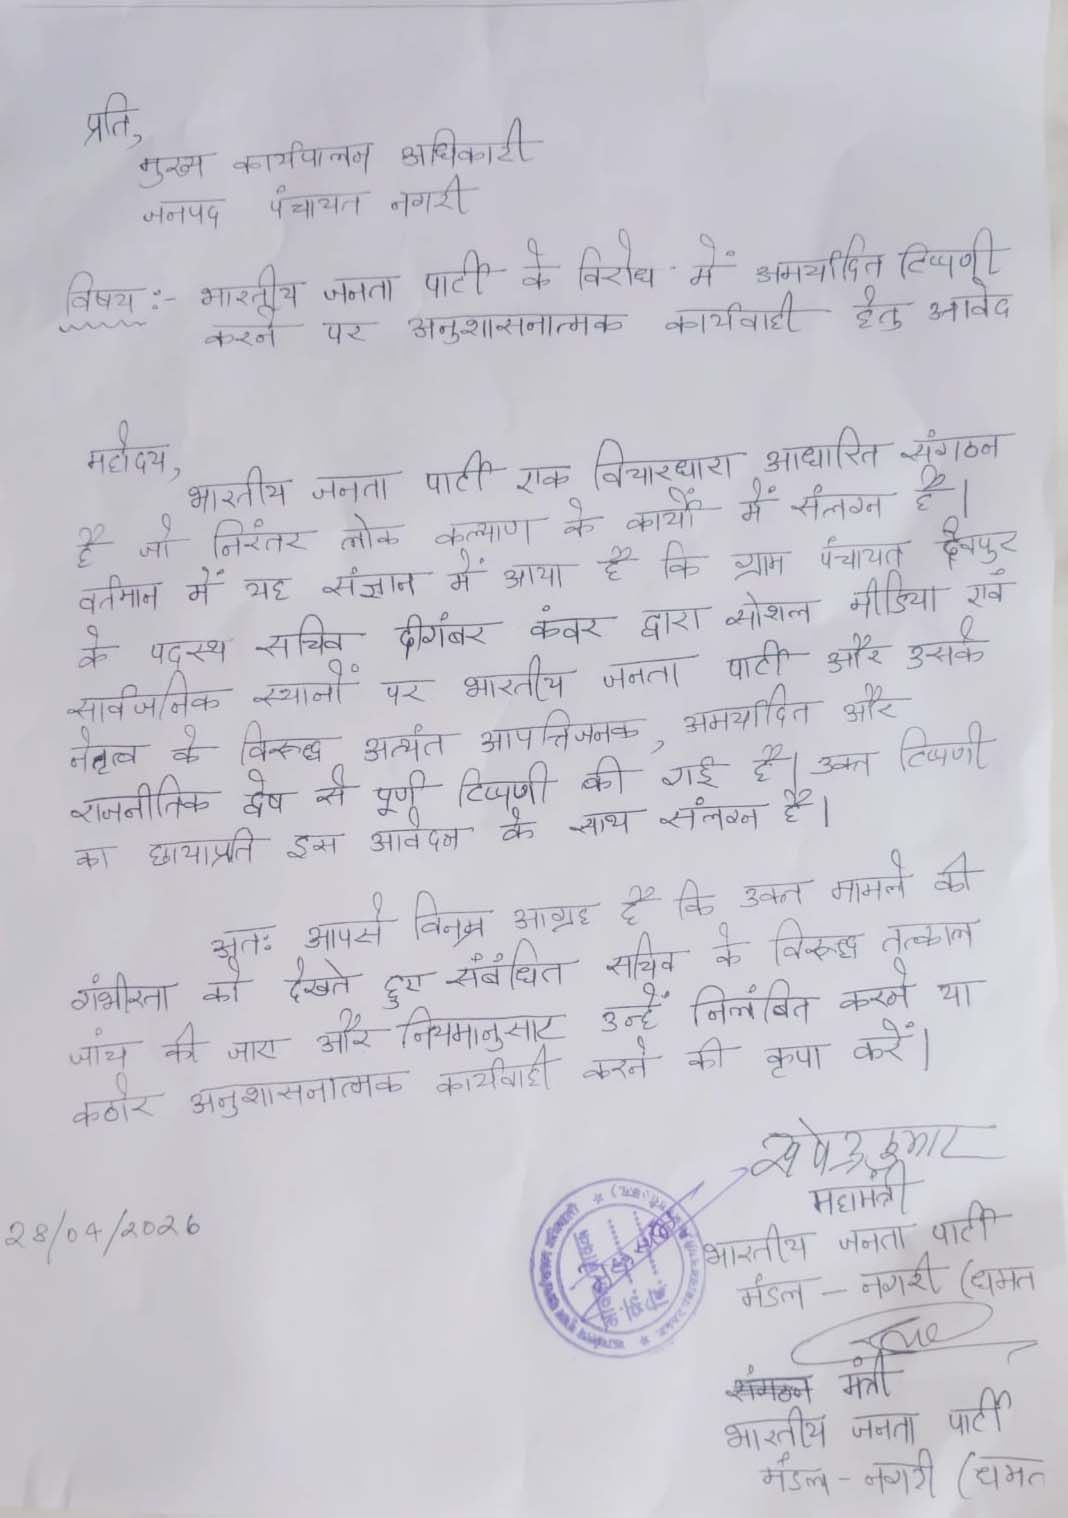 प्रति,
मुख्य कार्यपालन अधिकारी
जनपद पंचायत नगरी
विषय :- भारतीय जनता पार्टी के विरोध में अमर्यादित टिप्पणी
करने पर अनुशासनात्मक कार्यवाही हेतु आवेद
महोदय,
भारतीय जनता पार्टी एक विचारधारा आधारित संगठन
है जो निरंतर लोक कल्याण के कार्यों में संलग्न है।
वर्तमान में यह संज्ञान में आया है कि ग्राम पंचायत देवपुर
के पदस्थ सचिव दीगंबर कंवर द्वारा सोशल मीडिया एवं
सार्वजनिक स्थानों पर भारतीय जनता पार्टी और उसके
नेतृत्व के विरूद्ध अत्यंत आपत्तिजनक, अमर्यादित और
राजनीतिक द्वेष से पूर्ण टिप्पणी की गई है। उक्त टिप्पणी
का छायाप्रति इस आवेदन के साथ संलग्न है।
अतः आपसे विनम्र आग्रह है कि उक्त मामले की
गंभीरता को देखते हुए संबंधित सचिव के विरूद्ध तत्काल
जांच की जाए और नियमानुसार उन्हें निलंबित करने या
कठोर अनुशासनात्मक कार्यवाही करने की कृपा करें।
कुमार
महामंत्री
28/04/2026
भारतीय जनता पार्टी
मंडल - नगरी (धमत
संगठन मंत्री
भारतीय जनता पार्टी
मंडल - नगरी (धमत